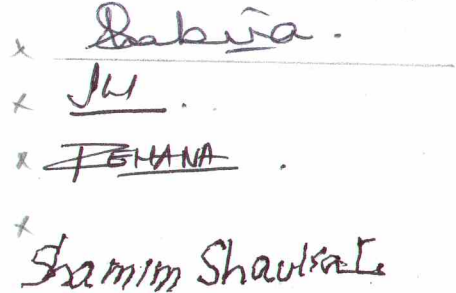 x Shakira.
x
x REHANA.
x
Shamim Shaukat